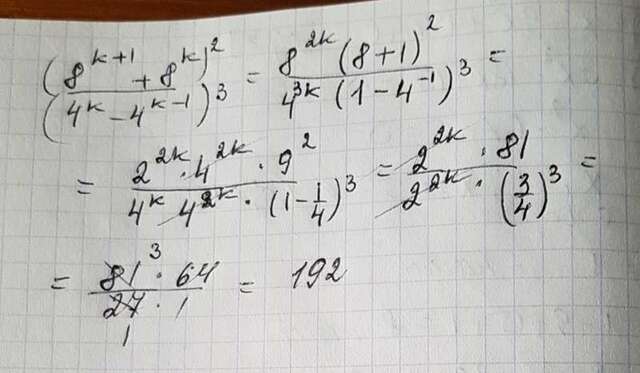 (8^{k+1} + 8^k)^2 / (4^k - 4^{k-1})^3 = 8^{2k} (8+1)^2 / 4^{3k} (1 - 4^{-1})^3 =
= 2^{2k} · 4^{2k} · 9^2 / 4^k 4^{2k} · (1 - 1/4)^3 = 2^{2k} · 81 / 2^{2k} · (3/4)^3 =
= 81^3 · 64 / 27_1 · 1 = 192